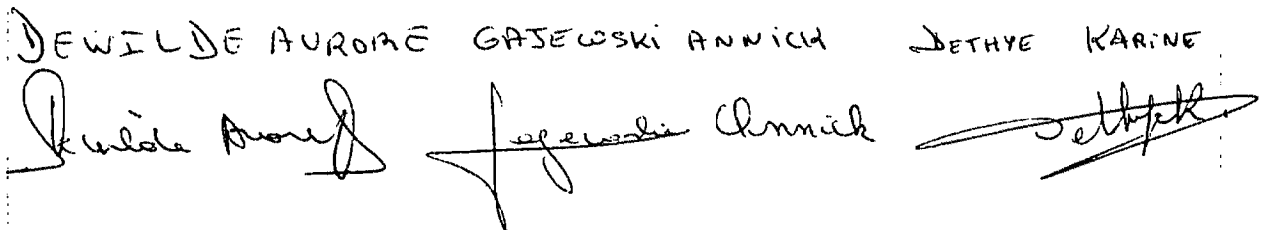 DEWILDE AURORE GAJEWSKI ANNICK DETHYE KARINE
Dewilde Aurore Gajewski Annick Dethye K.